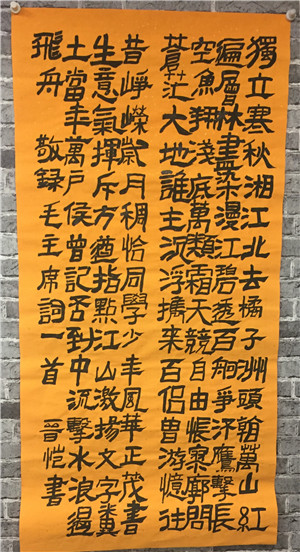 獨立寒秋湘江北去橘子洲頭看萬山紅
徧層林盡染漫江碧透百舸爭流鷹擊長
空魚翔淺底萬類霜天競自由悵寥廓問
蒼茫大地誰主沉浮攜來百侶曾游憶往
昔崢嶸歲月稠恰同學少年風華正茂書
生意氣揮斥方遒指點江山激揚文字糞
土當年萬戶侯曾記否到中流擊水浪遏
飛舟 敬録毛主席詞一首 晉愷書